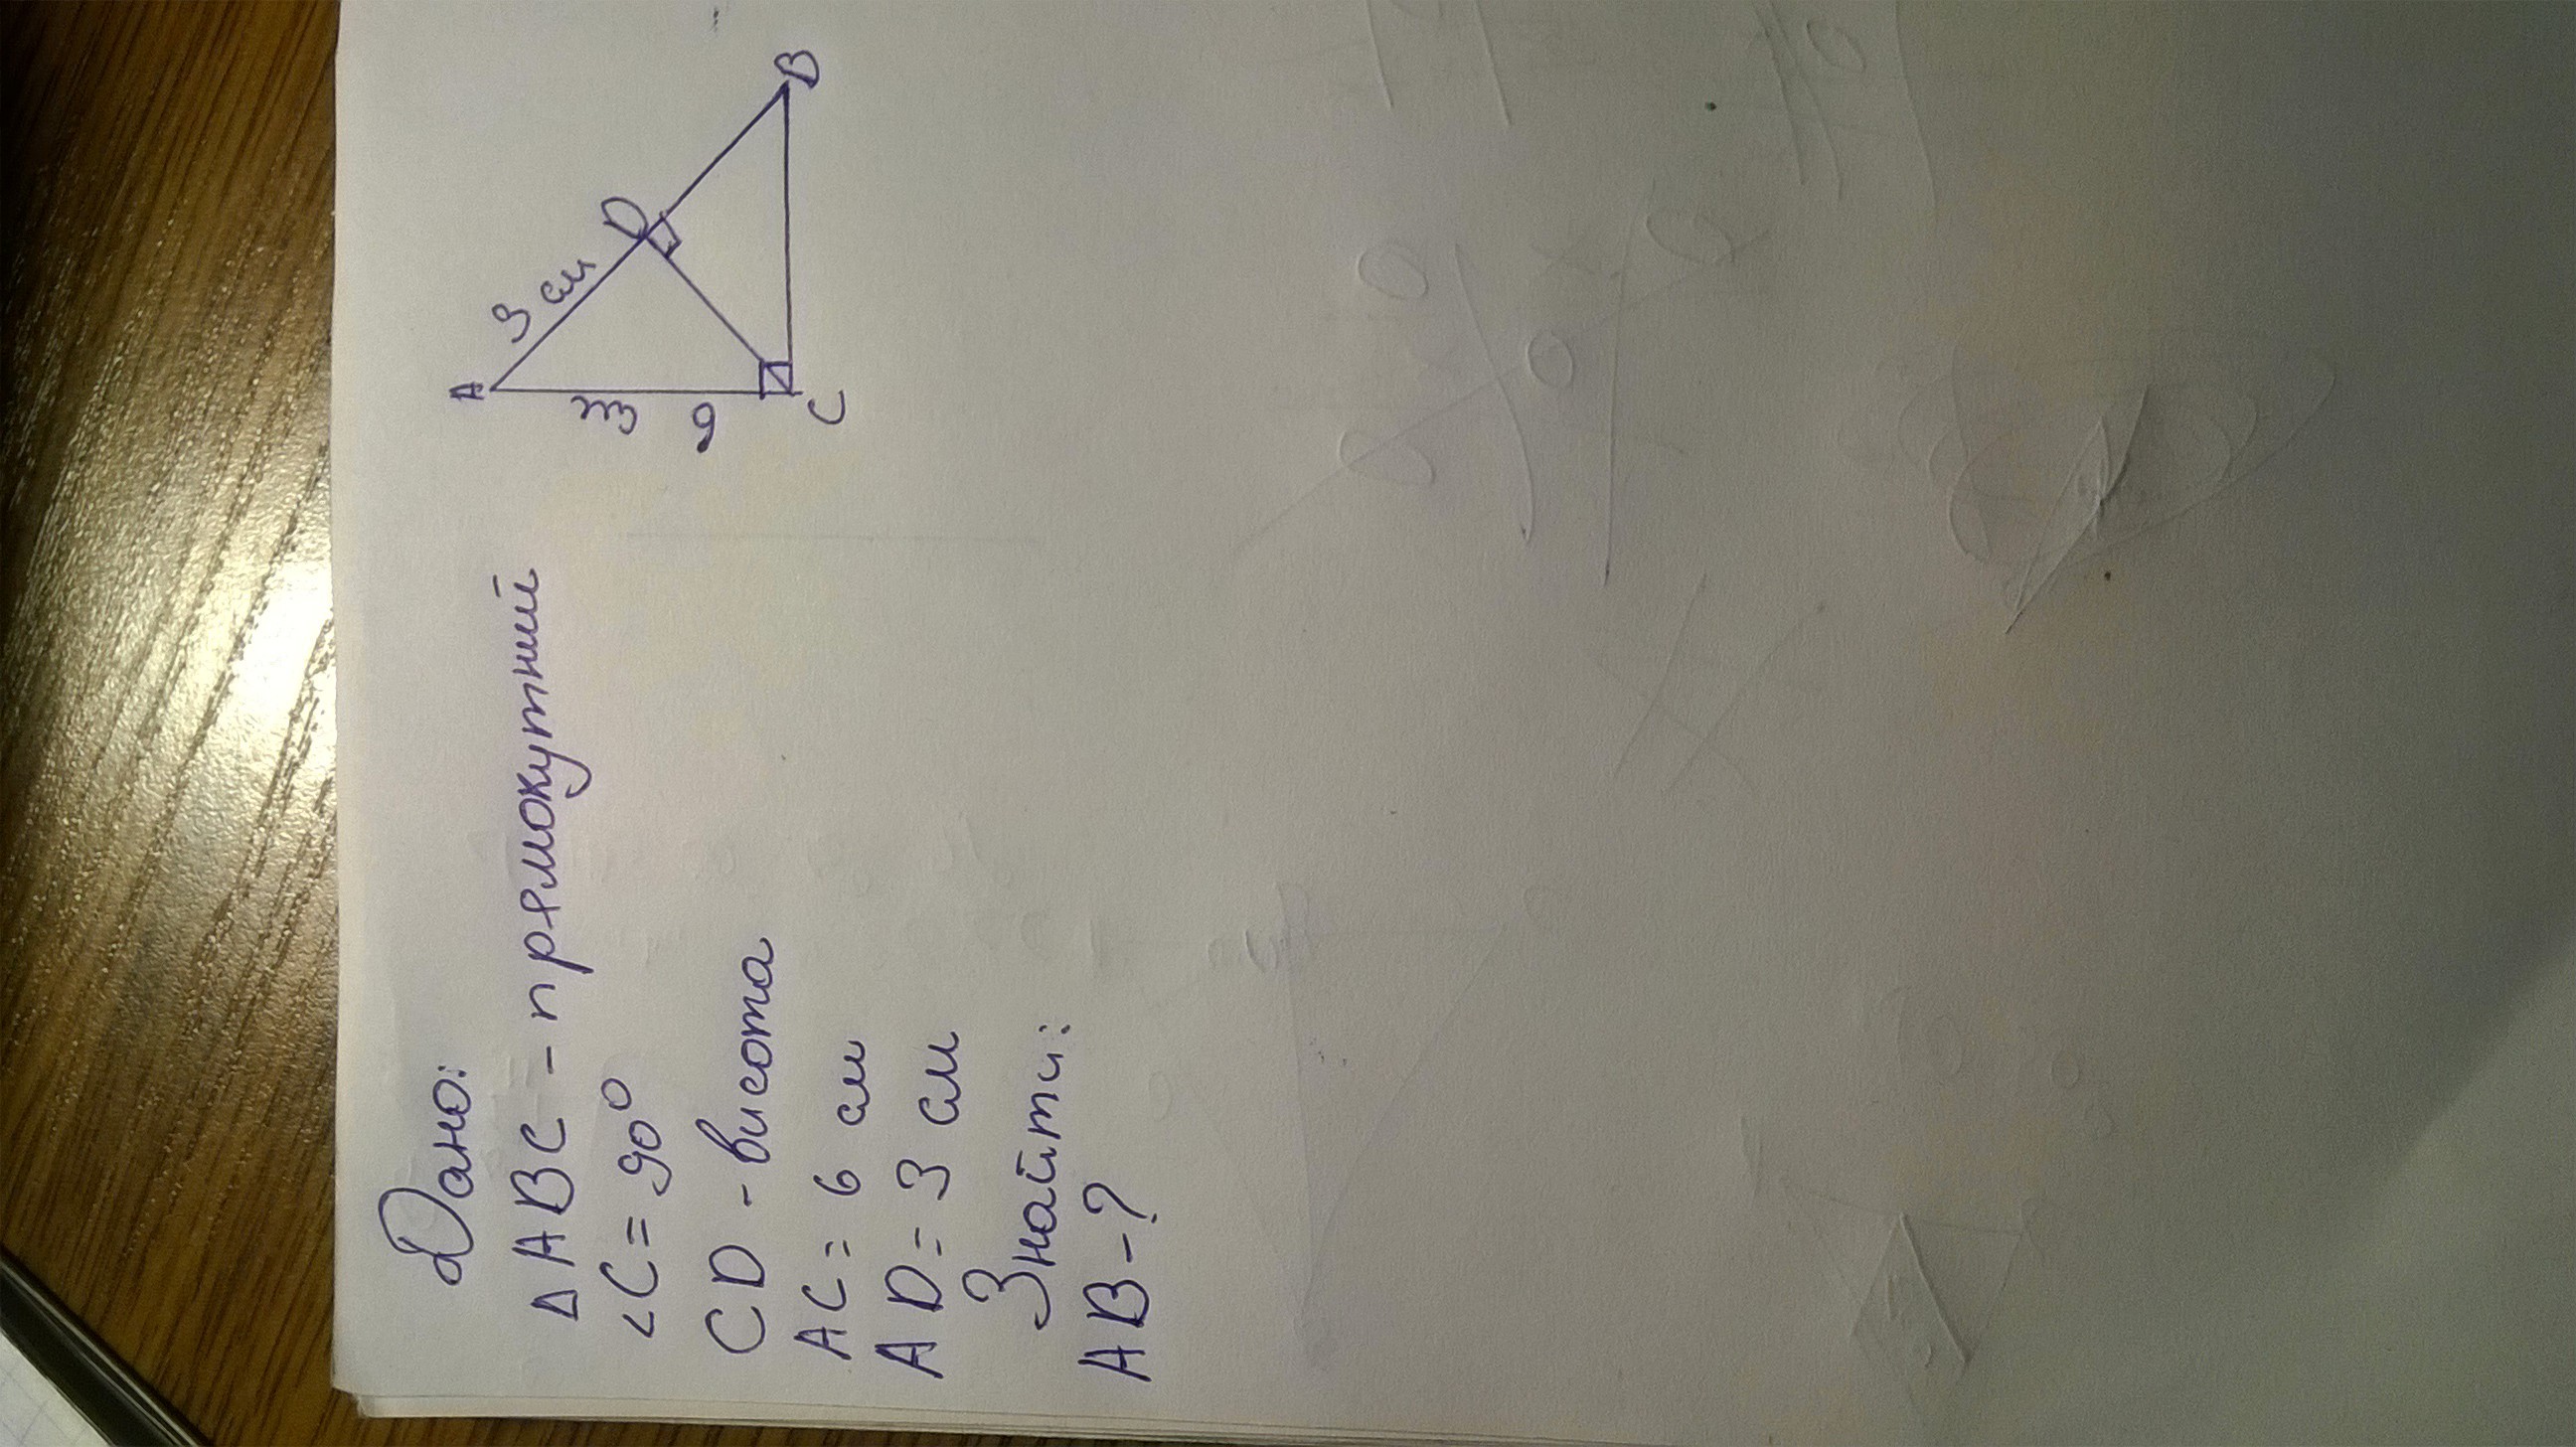 Дано:
Δ ABC - прямокутний
∠C = 90°
CD - висота
AC = 6 см
AD = 3 см
Знайти:
AB - ?
A
3 см
D
6 см
C
B